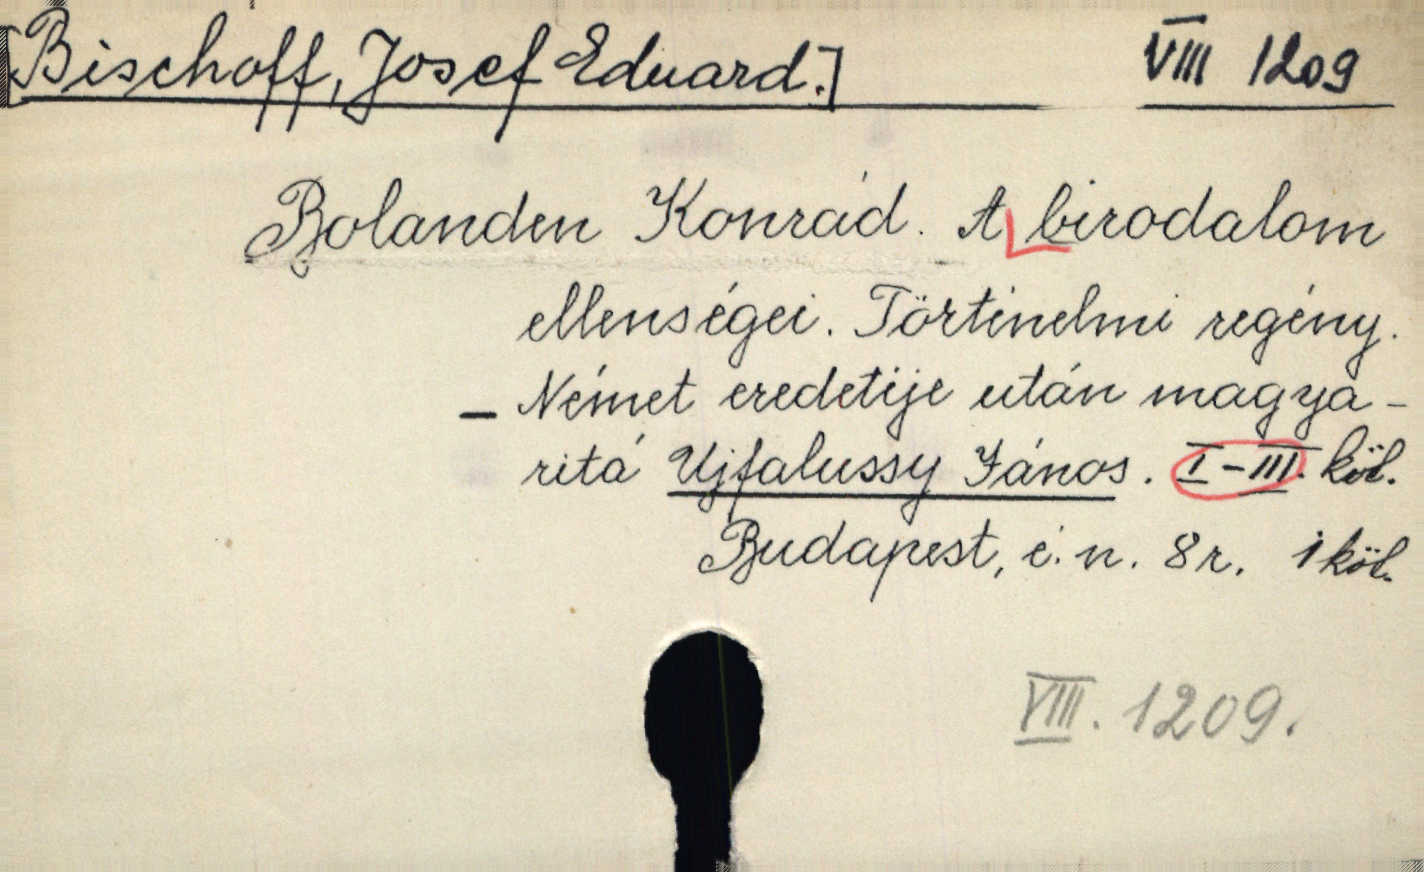 [Bischoff, Josef Eduard.] VIII 1209
Bolanden Konrád. A birodalom
ellenségei. Történelmi regény.
– Német eredetije után magya-
ritá Ujfalussy János. I-III. köt.
Budapest, é. n. 8r. 1 köt.
VIII. 1209.